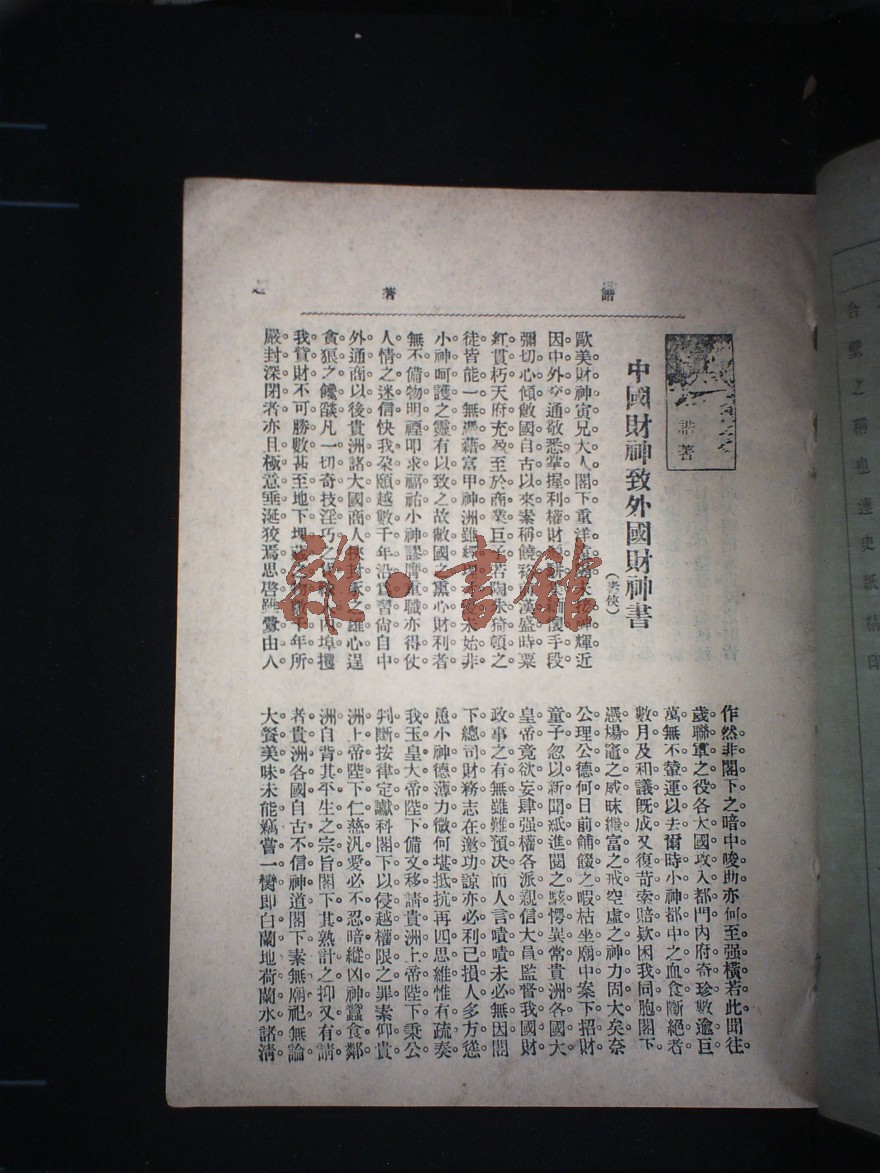 諧著
諧著
中國財神致外國財神書
歐美財神寅兄大人閣下重洋輝近
因中外交通敬悉掌握利權財手段
彌切心傾敝國自古以來案稱饒漢盛時粟
紅貫朽天府充盈至於商業巨子若陶朱猗頓之
徒皆能一無憑藉富甲神洲雖經未始非
小神呵護之靈有以致之故敝國之薰心財利者
無不備物明禋叩求福祐小神謬膺重職亦得仗
人情之迷信快我朶頤越數千年沿爲習尙自中
外通商以後貴洲諸大國商人挾封豕之雄心逞
貪狼之饞燄凡一切奇技淫巧之內埠攫
我貲財不可勝數甚至地下埋藏之物數千年所
嚴封深閉者亦且極意垂涎狡焉思啓雖釁由人
作然非閣下之暗中唆助亦何至强橫若此聞往
歲聯軍之役各大國攻入都門內府奇珍數逾巨
萬無不輦運以去爾時小神都中之血食斷絕者
數月及和議旣成又復苛索賠欵困我同胞閣下
憑煬竈之威昧攫富之戒空盧之神力固大矣奈
公理公德何日前餔餟之暇枯坐廟中案下招財
童子忽以新聞紙進閱之駭愕異常貴洲各國大
皇帝竟欲妄肆强權各派親信大員監督我國財
政事之有無雖難預决而人言嘖嘖未必無因閣
下總司財務志在邀功諒亦必利己損人多方慫
恿小神德薄力微何堪抵抗再四思維惟有疏奏
我玉皇大帝陛下備文移請貴洲上帝陛下秉公
判斷按律定讞科閣下以侵越權限之罪素仰貴
洲上帝陛下仁慈汎愛必不忍暗縱凶神蠶食鄰
洲自背其平生之宗旨閣下其熟計之抑又有請
者貴洲各國自古不信神道閣下素無廟祀無論
大餐美味未能竊嘗一臠即白蘭地荷蘭水諸淸
雜·書館
合璧之稱也達史紙精印